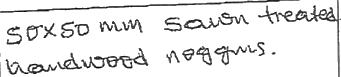 50x50 mm sawn treated
handwood noggins.